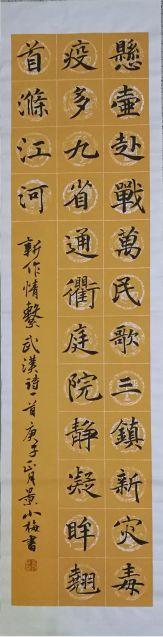 懸壺赴戰萬民歌三鎮新灾毒
疫多九省通衢庭院靜凝眸翹
首滌江河
新作情繫武漢詩一首庚子正月景小梅書